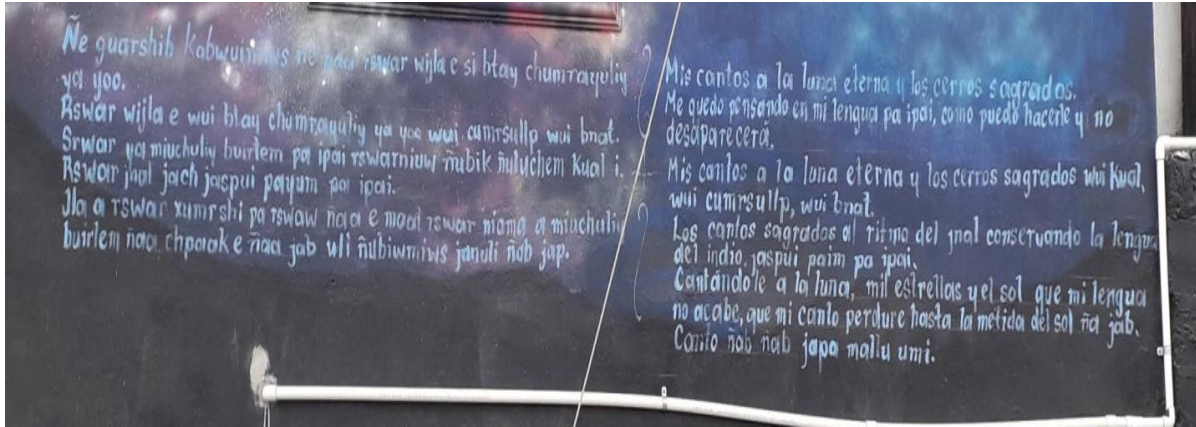 Ñe guarshih kabwuimiws ñe paa rswar wijla e si btay chumrayuliy
ya yoo.
Rswar wijla e wui btay chumrayuliy ya yoo wui cumrsullp wui bnat.
Srwar ya miuchuliy buirlem pa ipai rswarniuw ñubik ñuluchem kual i.
Rswar jhal jach jaspui payum pa ipai.
Jla a rswar xumrshi pa rswaw ñaa e moat rswar niama a miuchuliy
buirlem ñaa chpaak e ñaa jab wli ñubiwmiws januli ñab jap.
Mis cantos a la luna eterna y los cerros sagrados.
Me quedo pensando en mi lengua pa ipai, como puedo hacerle y no
desaparecerá.
Mis cantos a la luna eterna y los cerros sagrados wui kual,
wui cumrsullp, wui bnat.
Los cantos sagrados al ritmo del jnal conservando la lengua
del indio, jaspui paim pa ipai.
Cantándole a la luna, mil estrellas y el sol que mi lengua
no acabe, que mi canto perdure hasta la metida del sol ña jab.
Canto ñab ñab japa mallu umi.